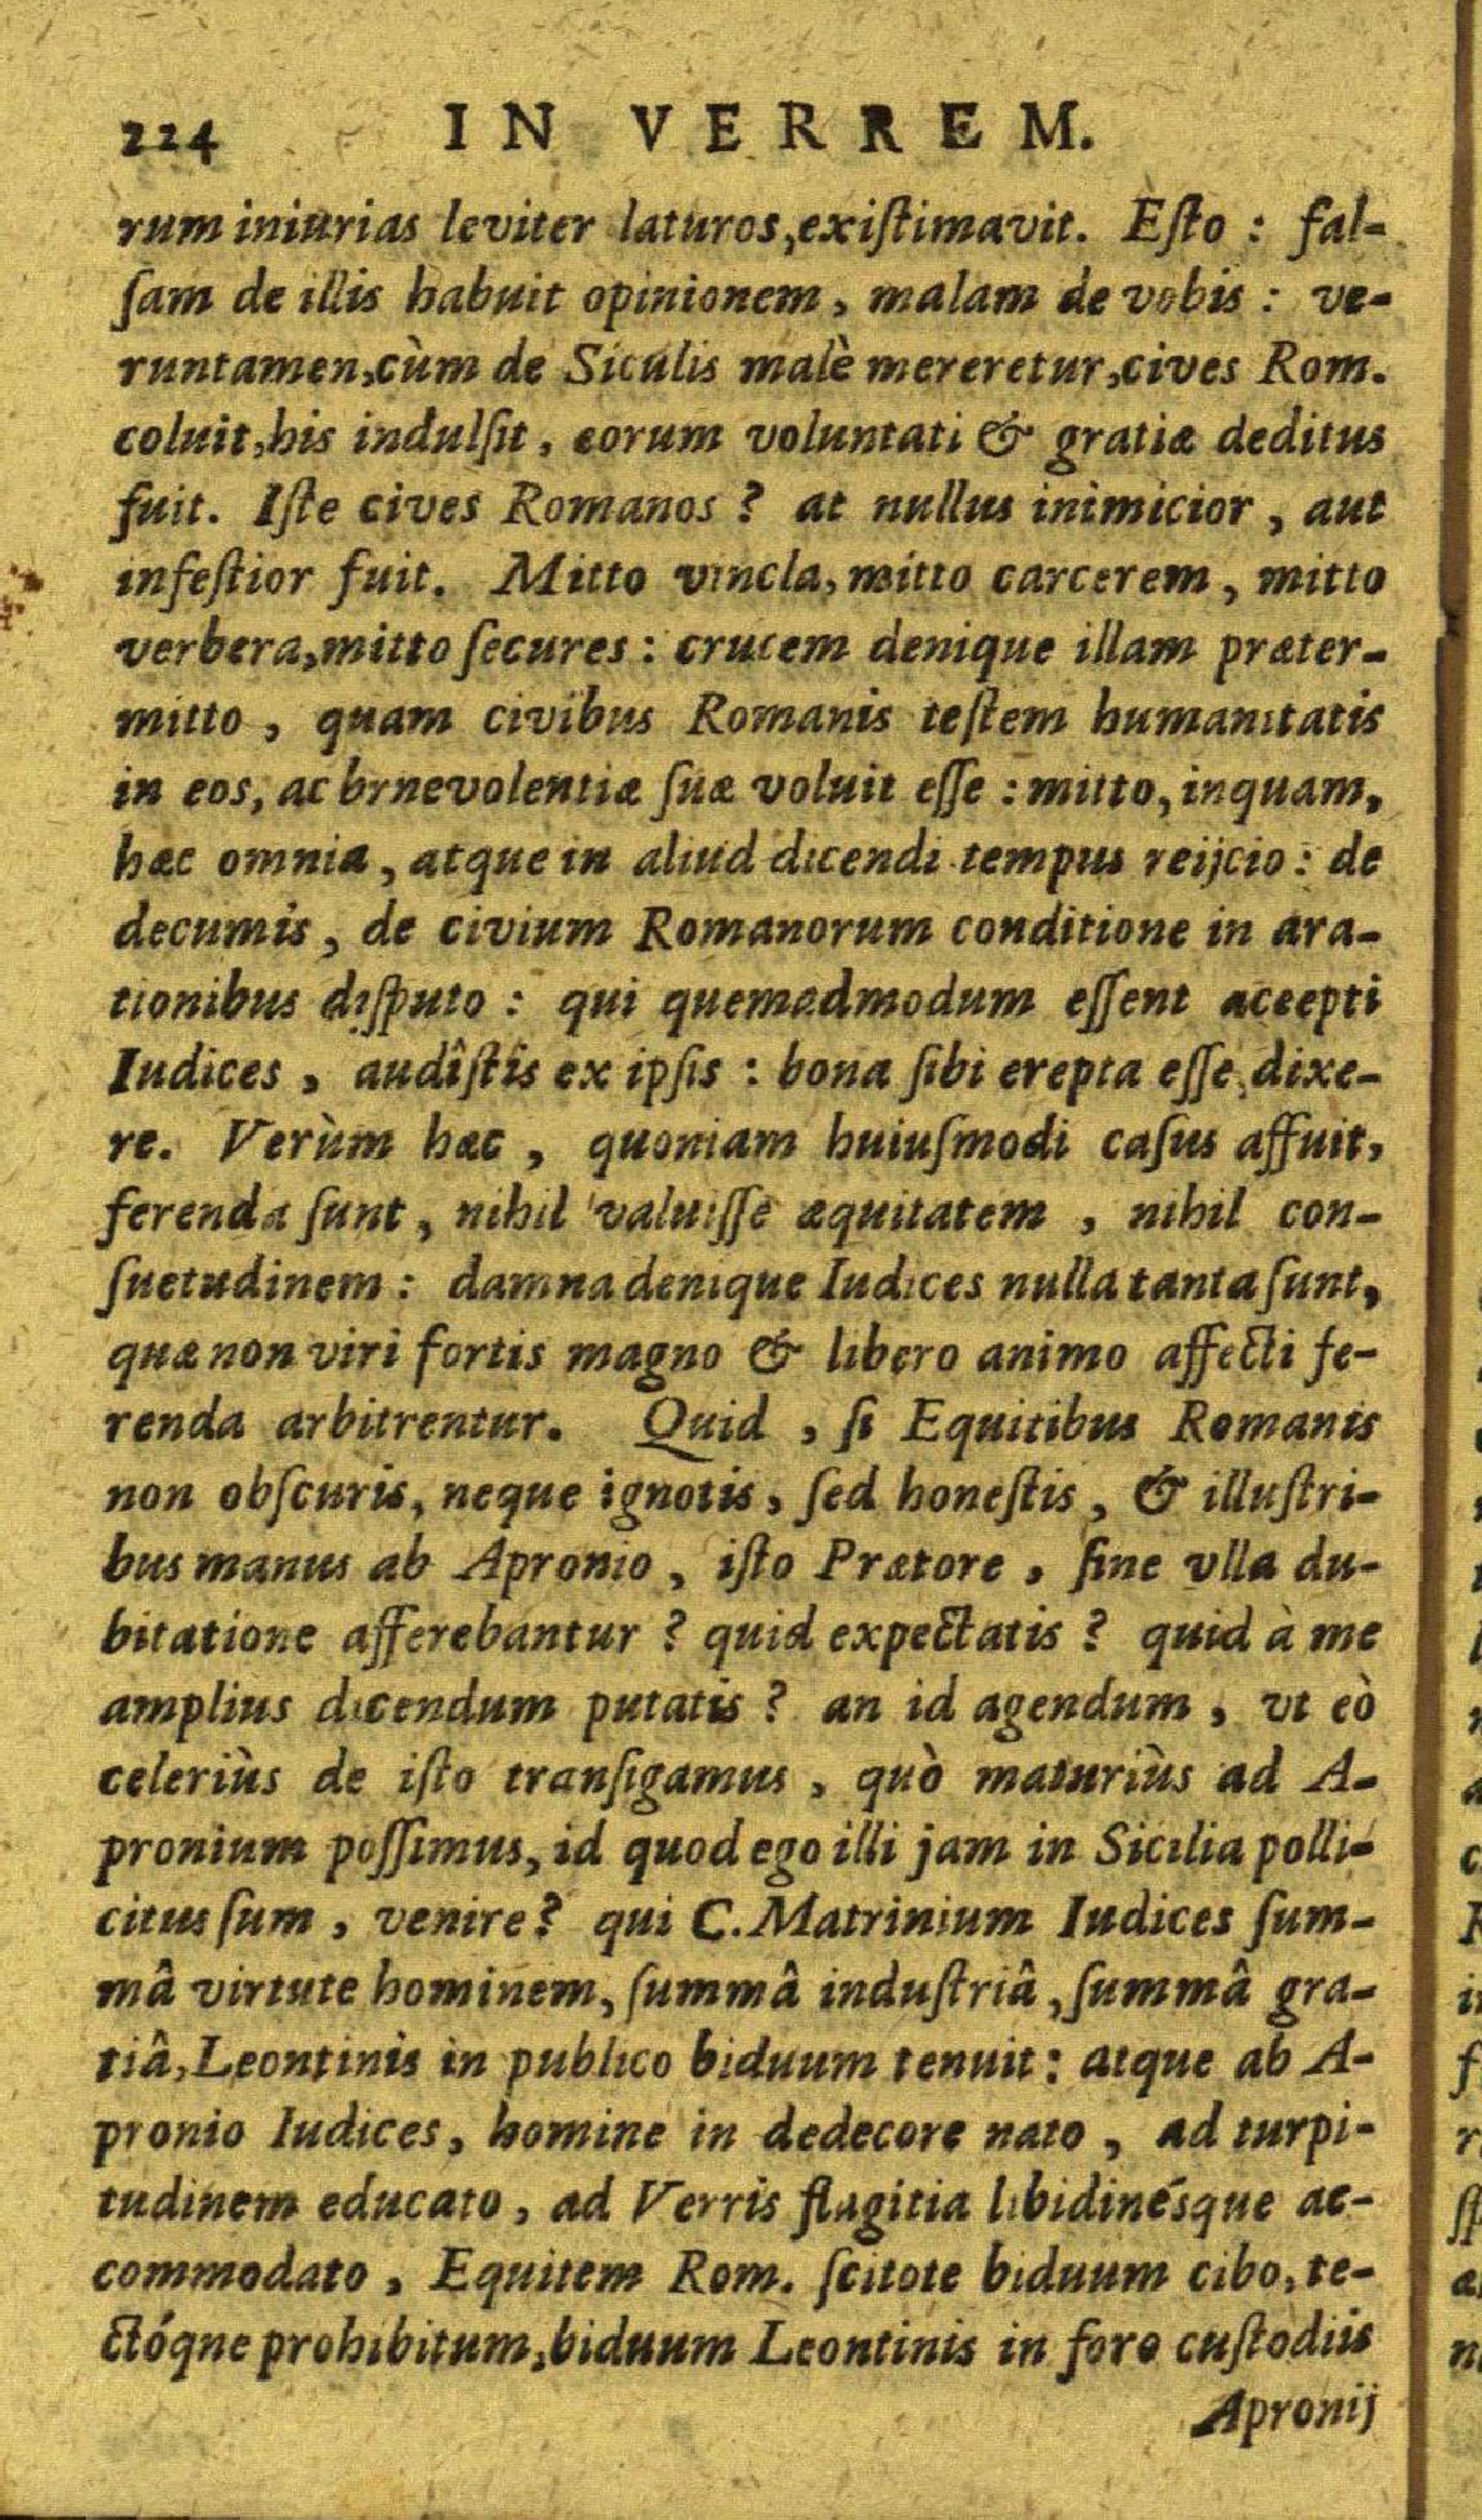 224 IN VERREM.
rum iniurias leviter laturos,exiſtimavit. Eſto : fal-
ſam de illis habuit opinionem, malam de vobis : ve-
runtamen,cùm de Siculis malè mereretur,cives Rom.
coluit,his indulſit, eorum voluntati & gratiæ deditus
fuit. Iſte cives Romanos ? at nullus inimicior, aut
infeſtior fuit. Mitto vincla, mitto carcerem, mitto
verbera,mitto ſecures : crucem denique illam præter-
mitto, quam civibus Romanis teſtem humanitatis
in eos, ac brnevolentiæ ſuæ voluit eſſe : mitto, inquam,
hæc omnia, atque in aliud dicendi tempus reijcio : de
decumis, de civium Romanorum conditione in ara-
tionibus diſputo : qui quemadmodum eſſent accepti
Iudices, audîſtis ex ipſis : bona ſibi erepta eſſe dixe-
re. Verùm hæc, quoniam huiuſmodi caſus affuit,
ferenda ſunt, nihil valuiſſe æquitatem, nihil con-
ſuetudinem : damna denique Iudices nulla tanta ſunt,
quæ non viri fortis magno & libero animo affecti fe-
renda arbitrentur. Quid, ſi Equitibus Romanis
non obſcuris, neque ignotis, ſed honeſtis, & illuſtri-
bus manus ab Apronio, iſto Prætore, ſine vlla du-
bitatione afferebantur ? quid expectatis ? quid à me
amplius dicendum putatis ? an id agendum, vt eò
celeriùs de iſto tranſigamus, quò maturiùs ad A-
pronium poſſimus, id quod ego illi jam in Sicilia polli-
citus ſum, venire? qui C. Matrinium Iudices ſum-
mâ virtute hominem, ſummâ induſtriâ, ſummâ gra-
tiâ, Leontinis in publico biduum tenuit : atque ab A-
pronio Iudices, homine in dedecore nato, ad turpi-
tudinem educato, ad Verris flagitia libidinésque ac-
commodato, Equitem Rom. ſcitote biduum cibo, te-
ctóque prohibitum, biduum Leontinis in foro cuſtodiis
Apronij